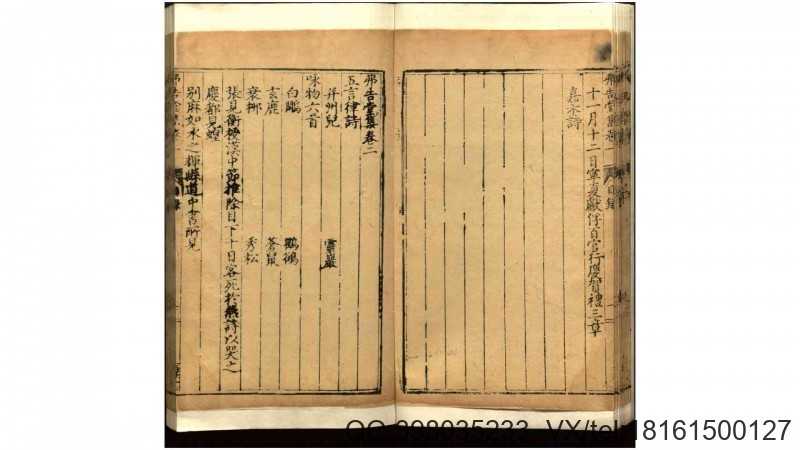 十一月十二日寧夏獻俘百官行慶賀禮三章
嘉禾詩
弗告堂集卷二
五言律詩
井州兒 靈巖
咏物六首
白鷴 鸜鵒
玄鹿 蒼鼠
衰柳 秀松
張見衡按漢中節推除目下十日客死於燕詩以哭之
慶都見蝗
別麻如水之輝縣道中書所見
QQ:898035233 VX/tel:18161500127